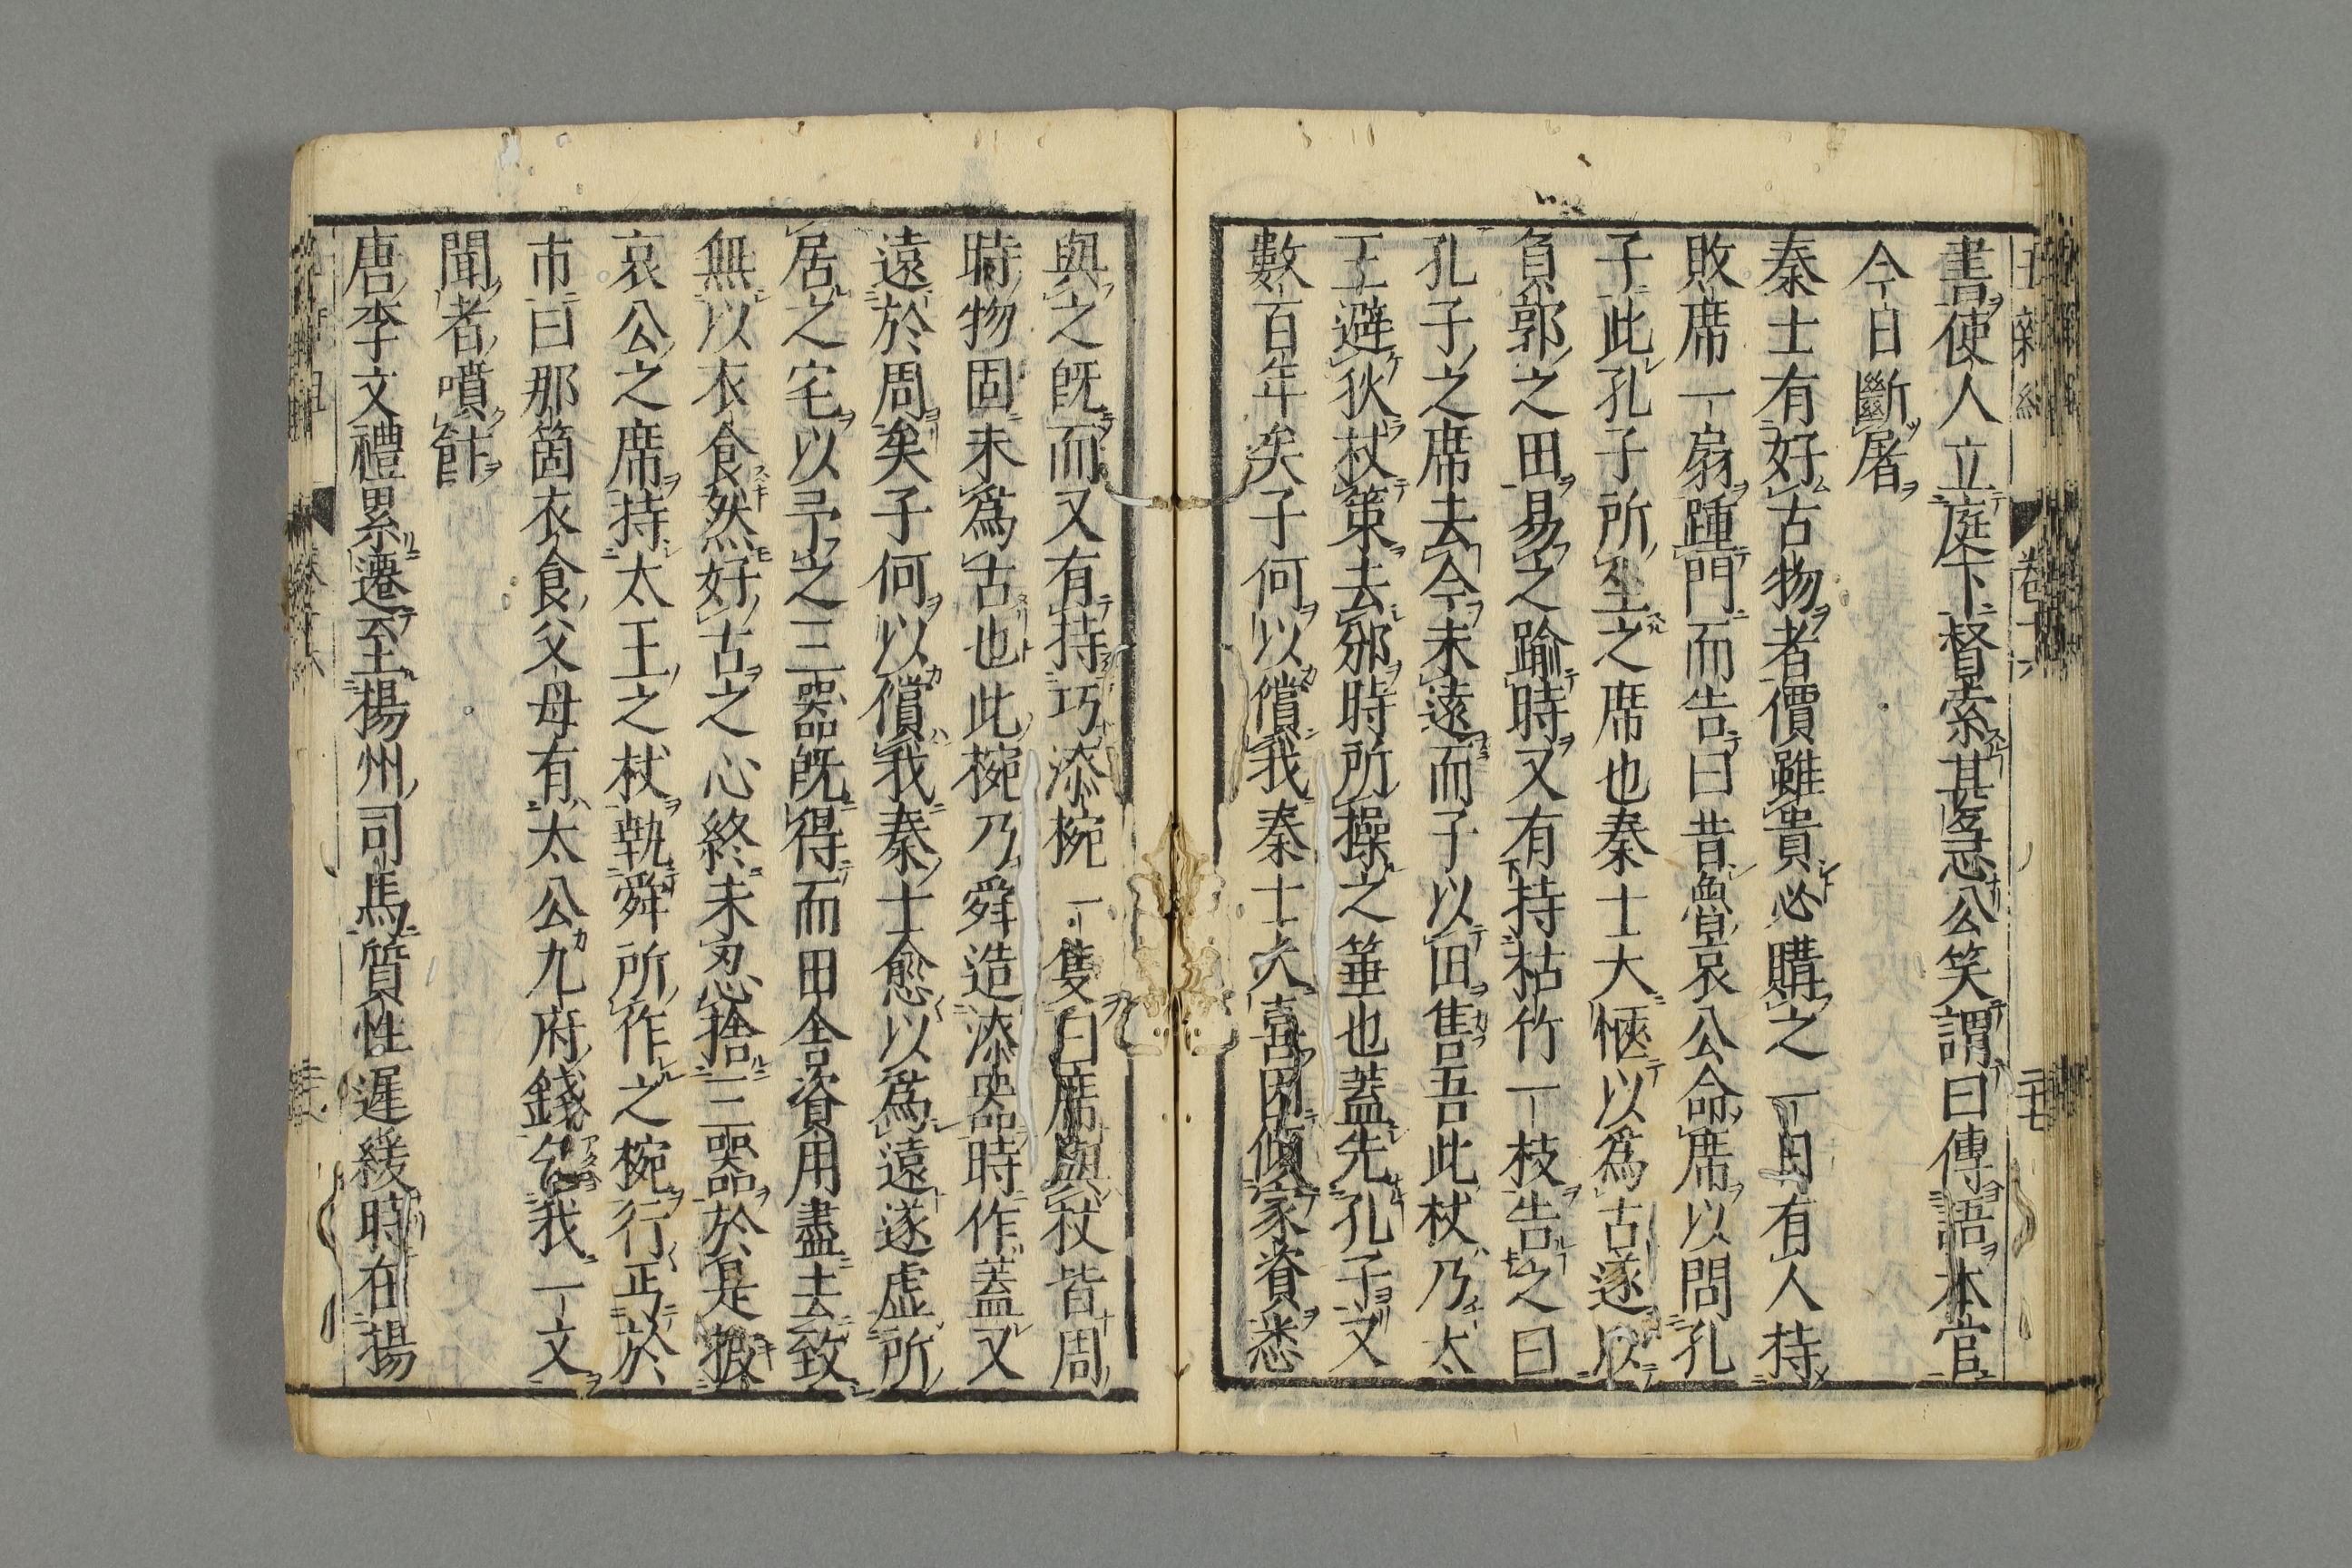 書使人立庭下督索甚急公笑謂曰傳語本官
今日斷屠
秦士有好古物者價雖貴必購之一日有人持
敗席一扇踵門而告曰昔魯哀公命席以問孔
子此孔子所坐之席也秦士大愜以爲古遂以
負郭之田易之踰時又有持枯竹一枝告之曰
孔子之席去今未遠而子以田售吾此杖乃太
王避狄杖策去邠時所操之箠也蓋先孔子又
數百年矣子何以償我秦士大喜因傾家資悉
與之旣而又有持巧漆椀一隻曰席與杖皆周
時物固未爲古也此椀乃舜造漆器時作蓋又
遠於周矣子何以償我秦士愈以爲遠遂虛所
居之宅以予之三器旣得而田舍資用盡去致
無以衣食然好古之心終未忍捨三器於是披
哀公之席持太王之杖執舜所作之椀行丐於
市曰那箇衣食父母有太公九府錢乞我一文
聞者噴飰
唐李文禮累遷至揚州司馬質性遲緩時在揚